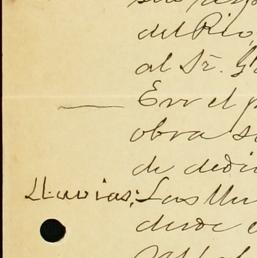 del Río,
al Sr. G
En el p
obra s
de dedi
Lluvias: Las llu
desde e